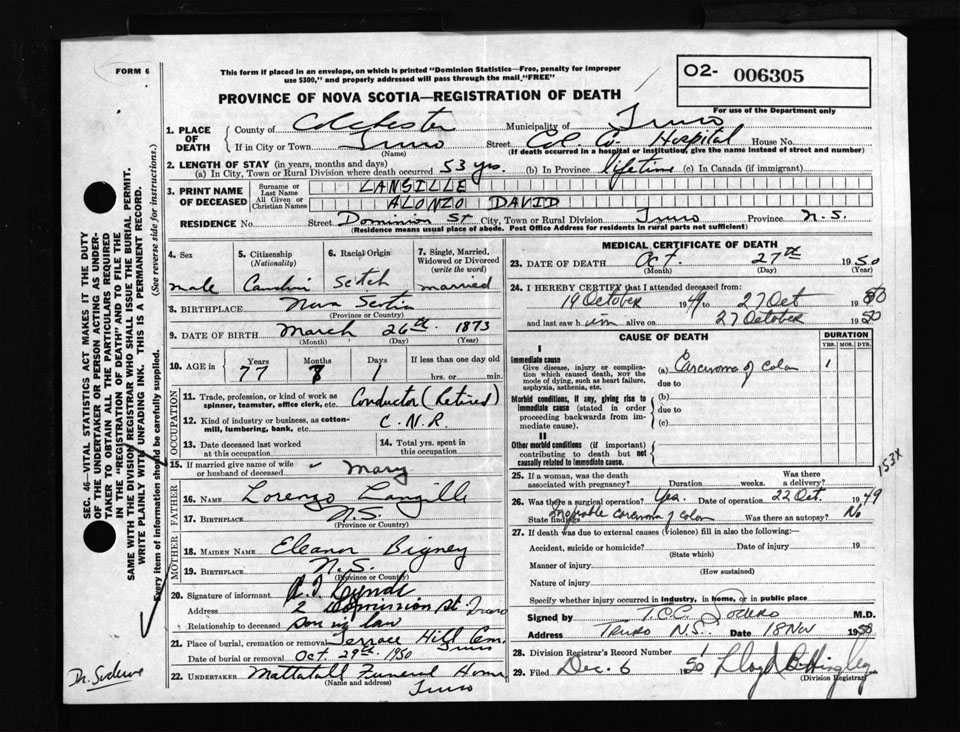 FORM 6
This form if placed in an envelope, on which is printed "Dominion Statistics—Free, penalty for improper
use $300," and properly addressed will pass through the mail "FREE"
O2- 006305
For use of the Department only
PROVINCE OF NOVA SCOTIA—REGISTRATION OF DEATH
1. PLACE OF DEATH
County of Colchester Municipality of Truro
If in City or Town Truro Street Col. Co. Hospital House No.
(Name) (If death occurred in a hospital or institution, give the name instead of street and number)
2. LENGTH OF STAY (in years, months and days)
(a) In City, Town or Rural Division where death occurred 53 yrs. (b) In Province lifetime (c) In Canada (if immigrant)
3. PRINT NAME OF DECEASED
Surname or Last Name LANGILLE
All Given or Christian Names ALONZO DAVID
RESIDENCE No. Street Dominion St City, Town or Rural Division Truro Province N.S.
(Residence means usual place of abode. Post Office Address for residents in rural parts not sufficient)
4. Sex male
5. Citizenship (Nationality)
6. Racial Origin Scotch
7. Single, Married, Widowed or Divorced (write the word) married
8. BIRTHPLACE Nova Scotia
(Province or Country)
9. DATE OF BIRTH March 26th 1873
(Month) (Day) (Year)
10. AGE in Years 77 Months Days 1 If less than one day old hrs. or min.
OCCUPATION
11. Trade, profession, or kind of work as spinner, teamster, office clerk, etc. Conductor (Retired)
12. Kind of industry or business, as cotton-mill, lumbering, bank, etc. C.N.R.
13. Date deceased last worked at this occupation
14. Total yrs. spent in this occupation
15. If married give name of wife or husband of deceased Mary
FATHER
16. NAME Lorenzo Langille
17. BIRTHPLACE N.S.
(Province or Country)
MOTHER
18. MAIDEN NAME Eleanor Bigney
19. BIRTHPLACE N.S.
(Province or Country)
20. Signature of informant
Address 2 Dominion St. Truro
Relationship to deceased son in law
21. Place of burial, cremation or removal Terrace Hill Cem. Truro
Date of burial or removal Oct. 29th 1950
22. UNDERTAKER Mattatall Funeral Home
(Name and address) Truro
MEDICAL CERTIFICATE OF DEATH
23. DATE OF DEATH Oct. 27th 1950
(Month) (Day) (Year)
24. I HEREBY CERTIFY that I attended deceased from:
19 October 1949 to 27 Oct 1950
and last saw him alive on 27 October 1950
CAUSE OF DEATH DURATION
YRS. MOS. DYS.
I
Immediate cause
Give disease, injury or complication which caused death, not the mode of dying, such as heart failure, asphyxia, asthenia, etc.
(a) Carcinoma of colon 1
due to
Morbid conditions, if any, giving rise to immediate cause (stated in order proceeding backwards from immediate cause).
(b)
due to
(c)
II
Other morbid conditions (if important) contributing to death but not causally related to immediate cause.
153X
25. If a woman, was the death associated with pregnancy? Duration weeks. Was there a delivery?
26. Was there a surgical operation? Yes. Date of operation 22 Oct. 1949
State findings Inoperable carcinoma of colon Was there an autopsy? No
27. If death was due to external causes (violence) fill in also the following:—
Accident, suicide or homicide? Date of injury 19
(State which)
Manner of injury
(How sustained)
Nature of injury
Specify whether injury occurred in industry, in home, or in public place
Signed by M.D.
Address TRURO N.S. Date 18 Nov 1950
28. Division Registrar's Record Number
29. Filed Dec. 6 1950 Lloyd
(Division Registrar)
SEC. 46—VITAL STATISTICS ACT MAKES IT THE DUTY
OF THE UNDERTAKER OR PERSON ACTING AS UNDER-
TAKER TO OBTAIN ALL THE PARTICULARS REQUIRED
IN THE "REGISTRATION OF DEATH" AND TO FILE THE
SAME WITH THE DIVISION REGISTRAR WHO SHALL ISSUE THE BURIAL PERMIT.
WRITE PLAINLY WITH UNFADING INK. THIS IS A PERMANENT RECORD.
Every item of information should be carefully supplied. (See reverse side for instructions.)